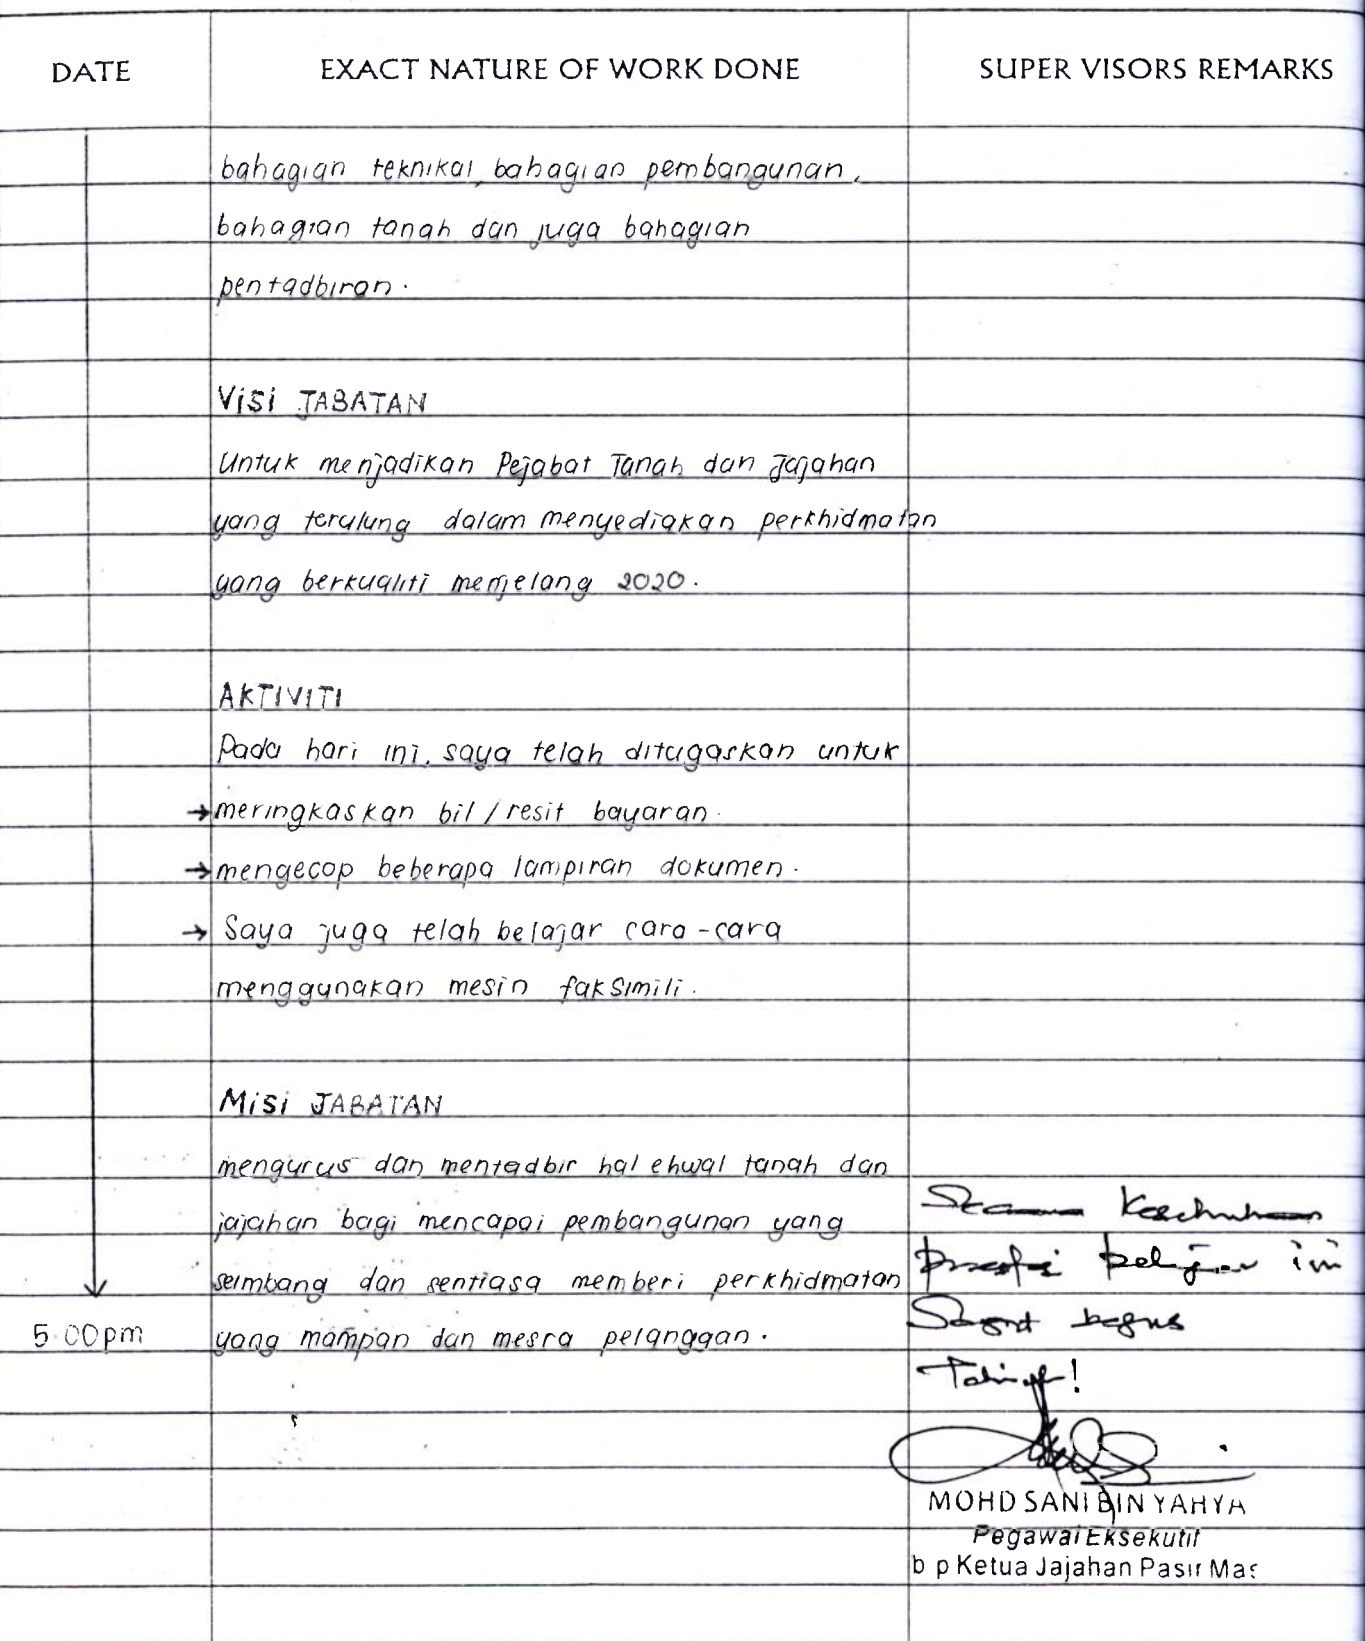 DATE
EXACT NATURE OF WORK DONE
SUPER VISORS REMARKS
bahagian teknikal, bahagian pembangunan,
bahagian tanah dan juga bahagian
pentadbiran.
Visi JABATAN
Untuk menjadikan Pejabat Tanah dan Jajahan
yang terulung dalam menyediakan perkhidmatan
yang berkualiti menjelang 2020.
AKTIVITI
Pada hari ini, saya telah ditugaskan untuk
→ meringkaskan bil / resit bayaran.
→ mengecop beberapa lampiran dokumen.
→ Saya juga telah belajar cara-cara
menggunakan mesin faksimili.
Misi JABATAN
mengurus dan mentadbir hal ehwal tanah dan
jajahan bagi mencapai pembangunan yang
seimbang dan sentiasa memberi perkhidmatan
5.00pm
yang mampan dan mesra pelanggan.
Secara Keseluruhan
prestasi pelajar ini
Sangat bagus
Tahniah!
MOHD SANI BIN YAHYA
Pegawai Eksekutif
b p Ketua Jajahan Pasir Mas